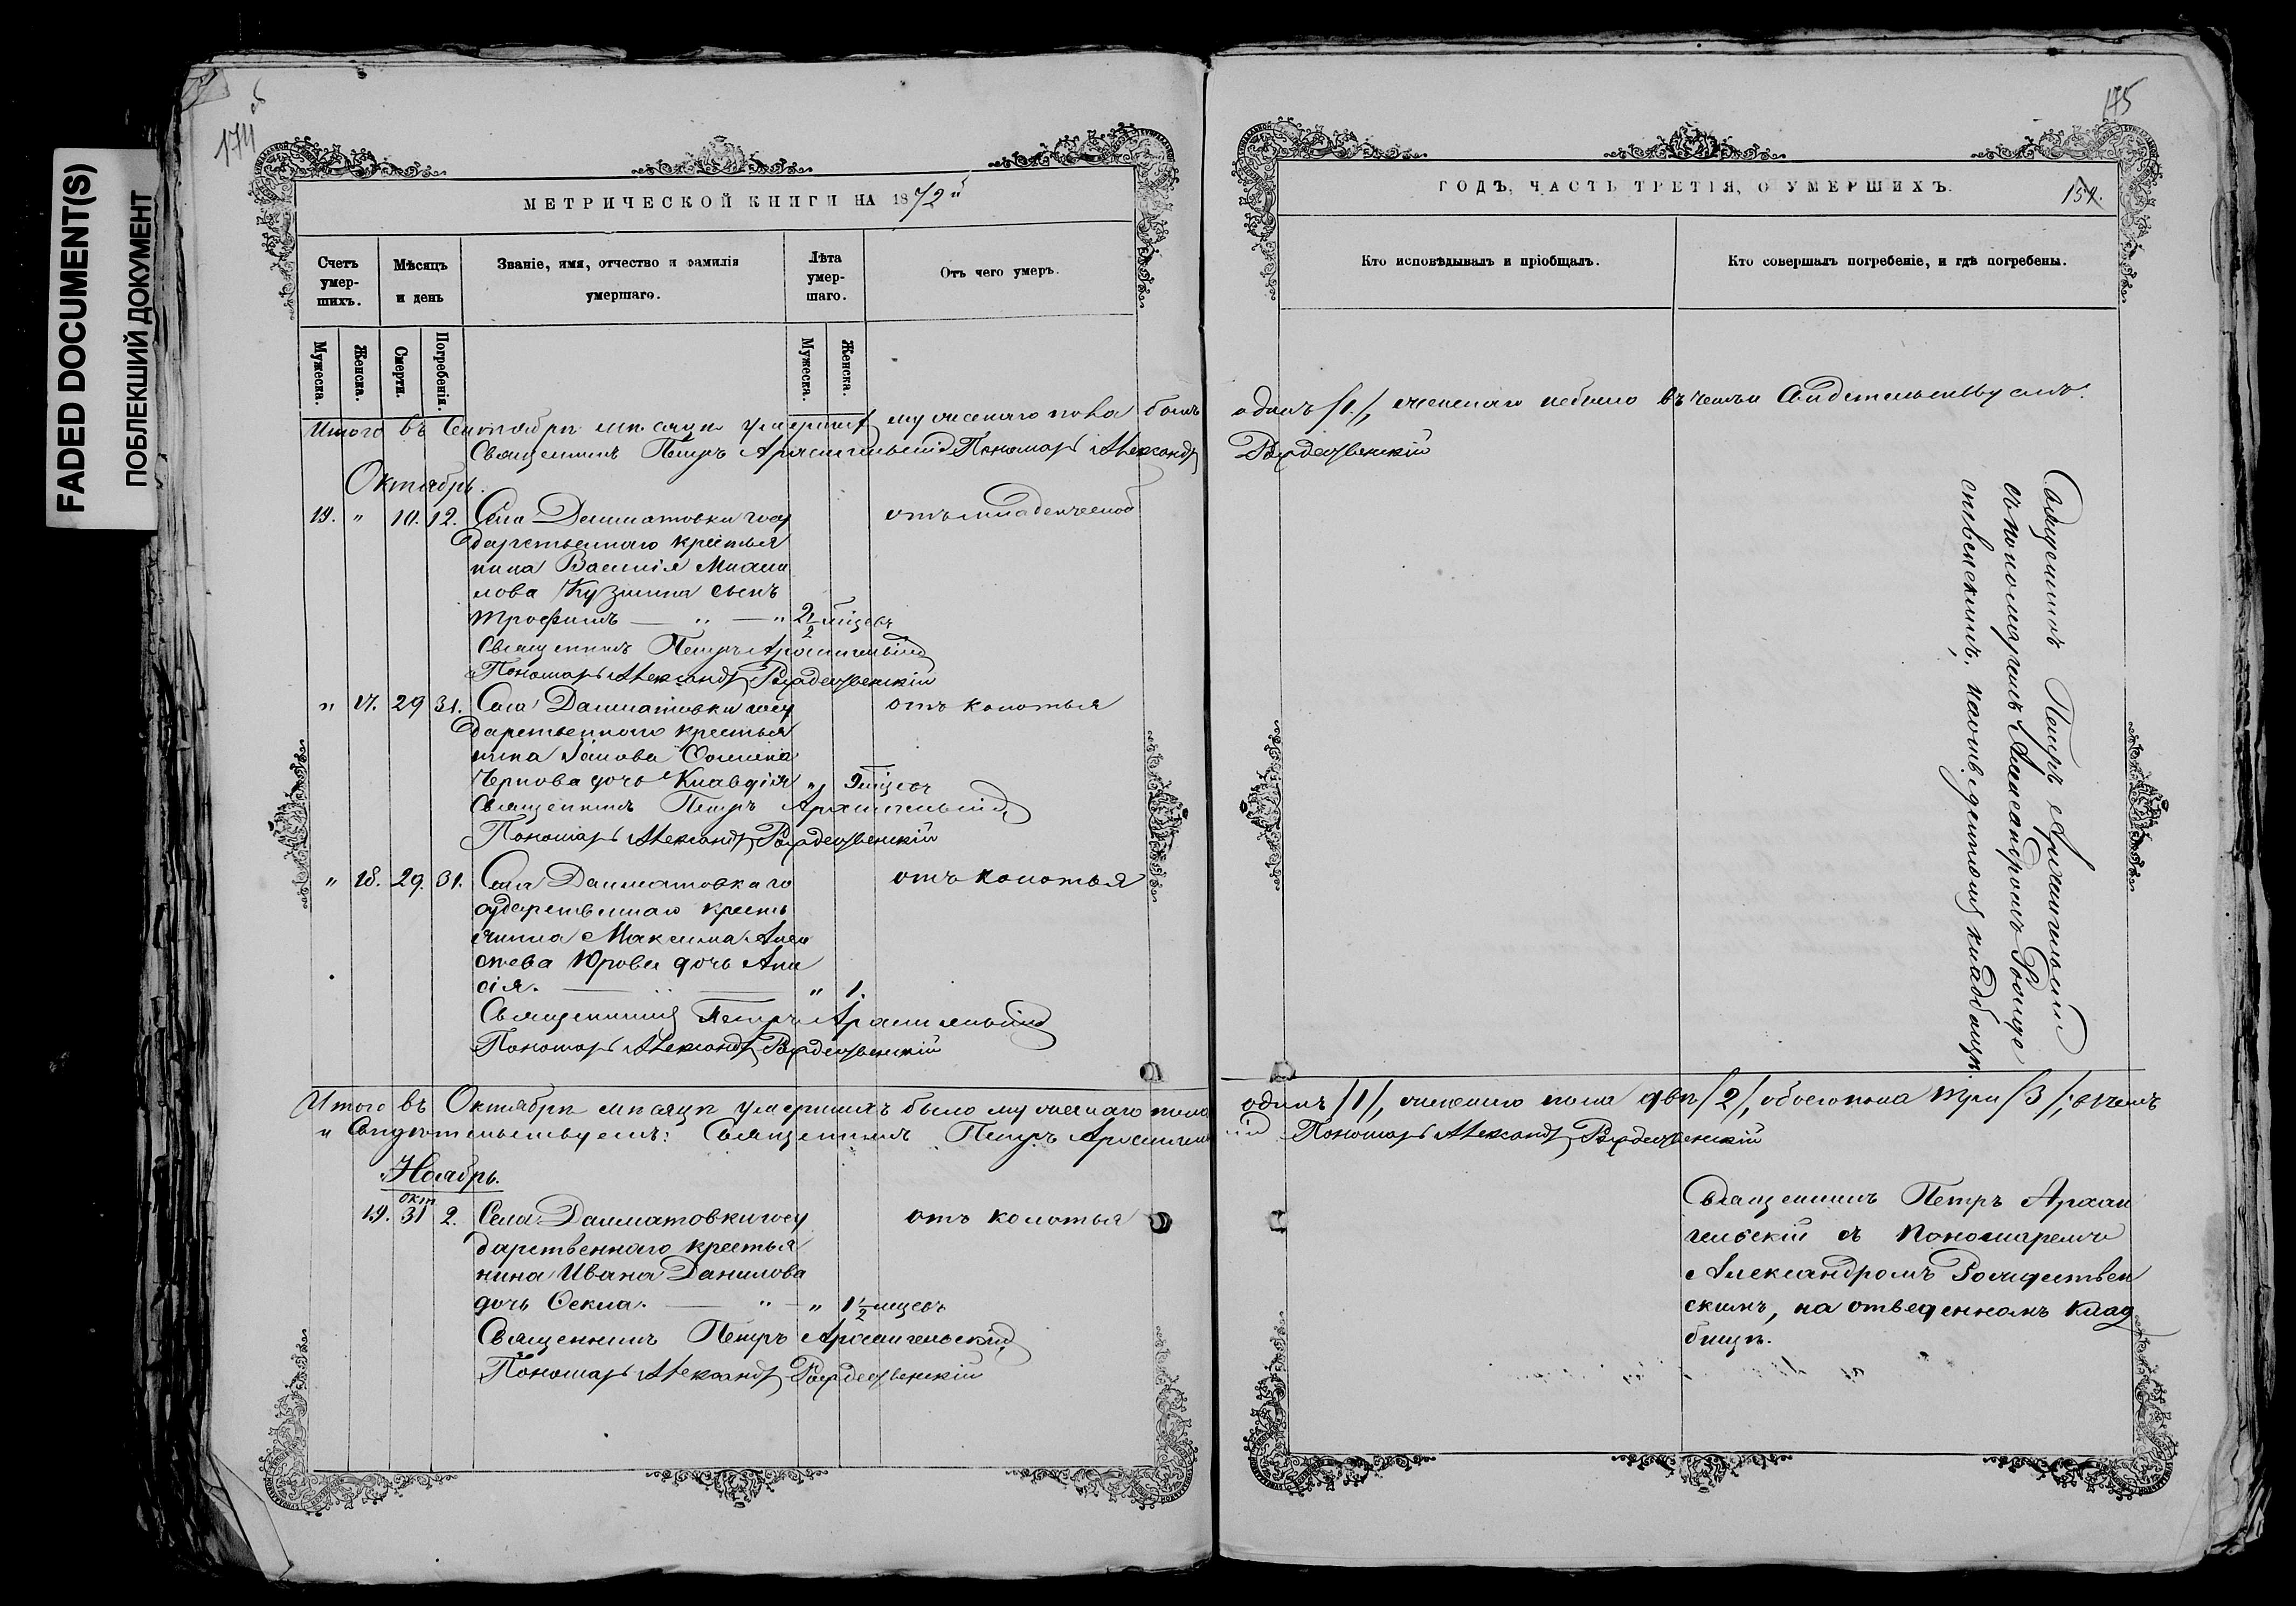 FADED DOCUMENT(S)
ПОБЛЕКШИЙ ДОКУМЕНТ
174 об
МЕТРИЧЕСКОЙ КНИГИ НА 1872й
Счетъ умер-шихъ.
Мѣсяцъ и день
Званіе, имя, отчество и фамилія умершаго.
Лѣта умер-шаго.
Отъ чего умеръ.
Мужеска.
Женска.
Смерти.
Погребенія.
Мужеска.
Женска.
Итого въ Сентябрѣ мѣсяцѣ умершихъ мужескаго пола былъ
Священникъ Петръ Архангельскій Пономарь Александръ
Октябрь.
19. " 10. 12. Села Далматовки госу отъ младенческой
дарственнаго крестья
нина Василія Михаи
лова Кузмина сынъ
Трофимъ — " — " 2 1/2 мѣцевъ
Священникъ Петръ Архангельскій
Пономарь Александръ Рождественскій
" 17. 29 31. Села Далматовки госу отъ колотья
дарственнаго крестья
нина Іакова Ѳомина
Чернова дочь Клавдія " 9 мѣцевъ
Священникъ Петръ Архангельскій
Пономарь Александръ Рождественскій
" 18. 29. 31. Села Далматовка го отъ колотья
сударственнаго кресть
янина Максима Алек
сеева Юрова дочь Ани
сія. — " 1.
Священникъ Петръ Архангельскій
Пономарь Александръ Рождественскій
Итого въ Октябрѣ мѣсяцѣ умершихъ было мужескаго пола
Свидѣтельствуемъ: Священникъ Петръ Архангельск
Ноябрь.
окт
19. 31 2. Села Далматовки госу отъ колотья
дарственнаго крестья
нина Ивана Данилова
дочь Ѳекла. — " — " 1 1/2 мцевъ
Священникъ Петръ Архангельскій
Пономарь Александръ Рождественскій
175
ГОДЪ, ЧАСТЬ ТРЕТІЯ, О УМЕРШИХЪ.
Кто исповѣдывалъ и пріобщалъ.
Кто совершалъ погребеніе, и гдѣ погребены.
одинъ /1/, женскаго небыло въ чемъ и Свидетельствуемъ:
Рождественскій
Священникъ Петръ Архангельскій
съ пономаремъ Александромъ Рожде
ственскимъ, на отведенномъ кладбищѣ.
одинъ /1/, женскаго пола двѣ /2/, обоего пола три /3/, въ чемъ
ій Пономарь Александръ Рождественскій
Священникъ Петръ Архан
гельскій съ Пономаремъ
Александромъ Рождествен
скимъ, на отведенномъ клад
бищѣ.